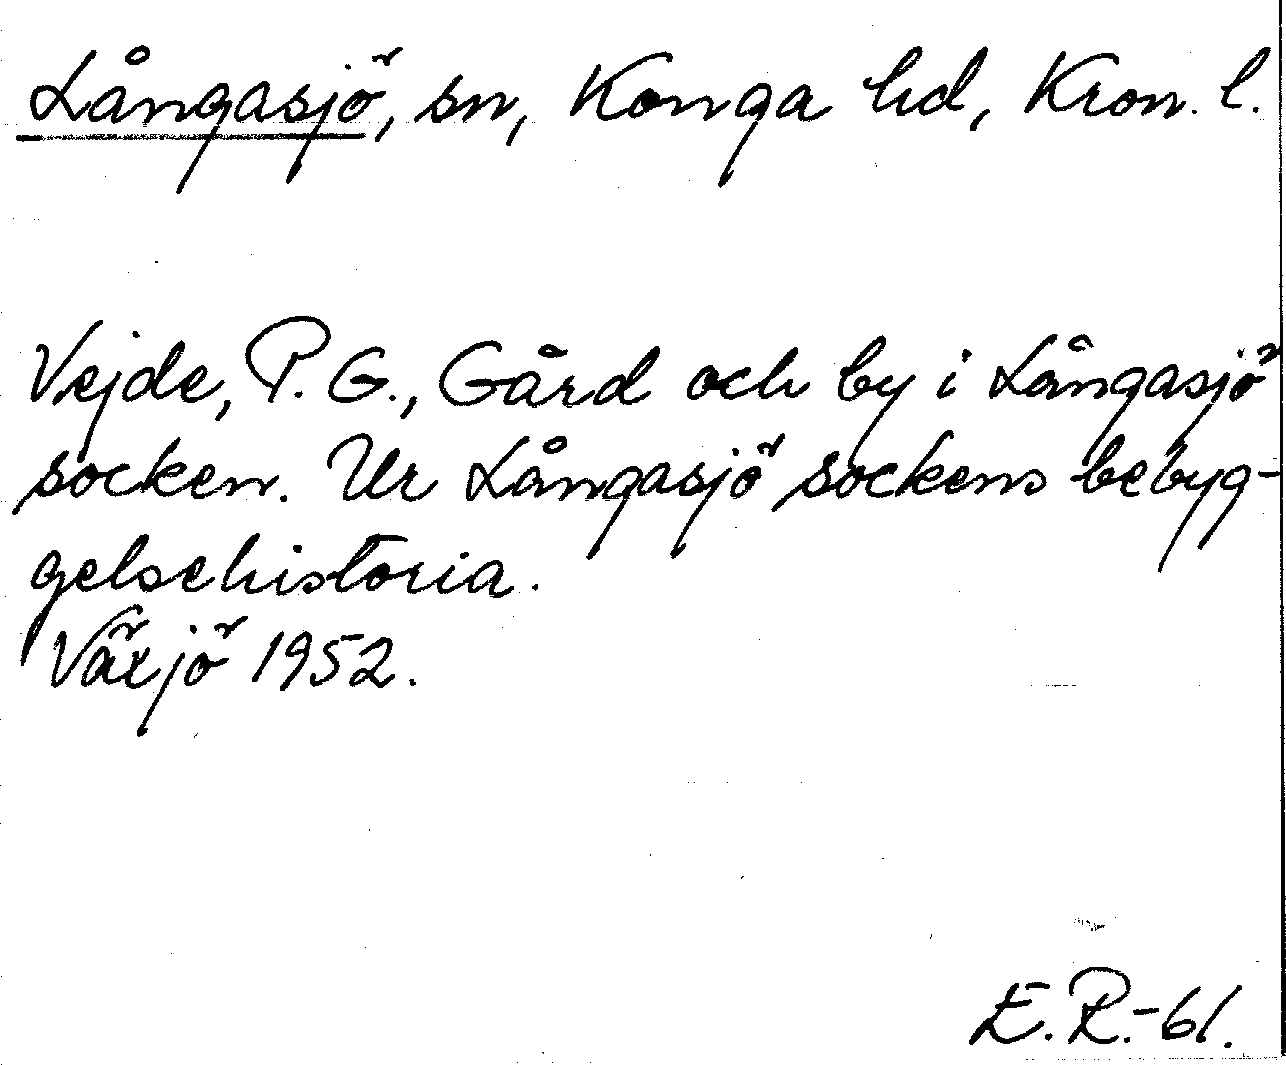 Långasjö, sn, Konga hd, Kron. l.
Vejde, P. G., Gård och by i Långasjö
socken. Ur Långasjö sockens bebyg-
gelsehistoria.
Växjö 1952.
E. R.-61.